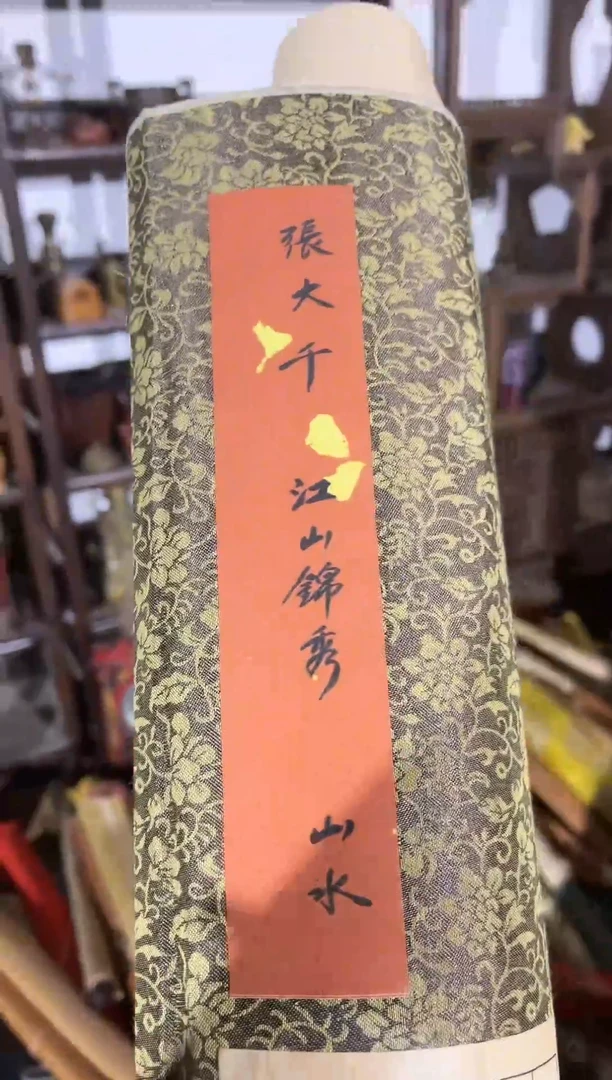 張大千 江山錦秀 山水